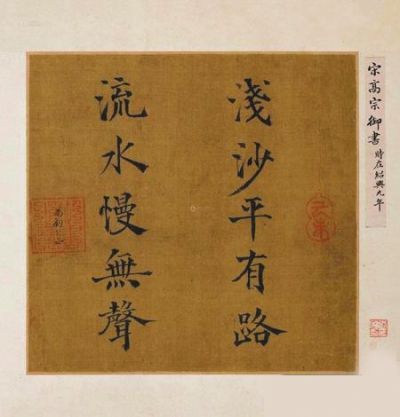 淺沙平有路
流水慢無聲
宋高宗御書
時在紹興九年